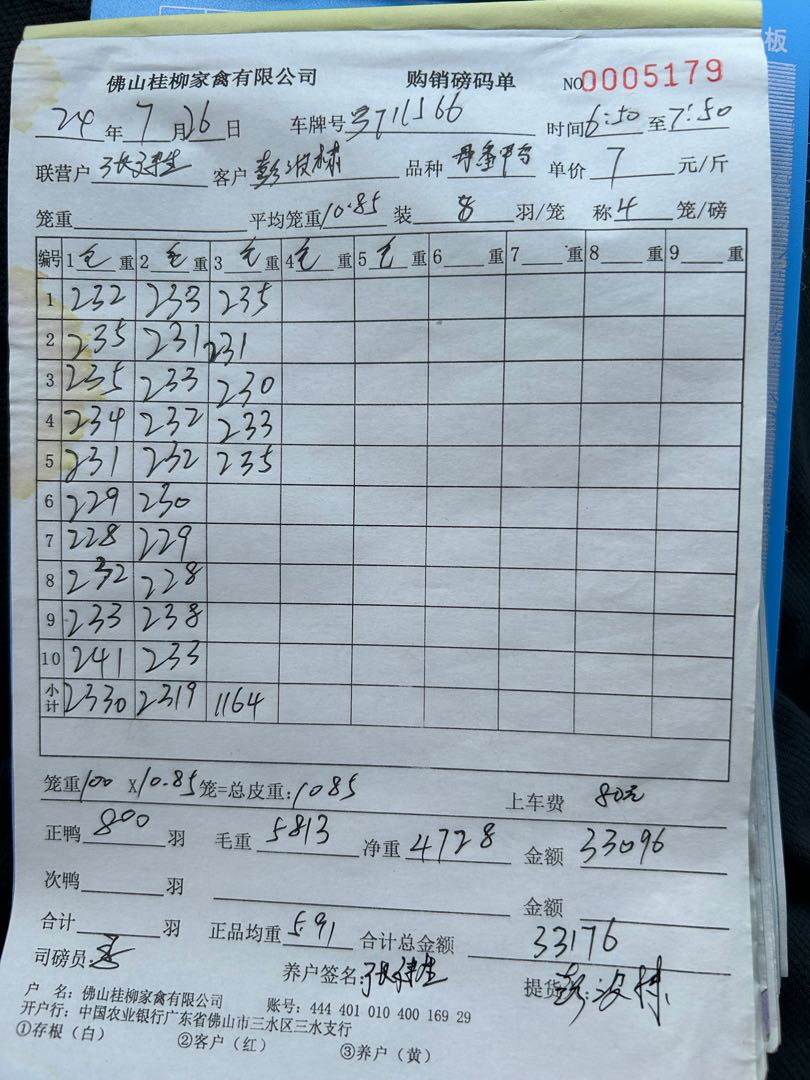 佛山桂柳家禽有限公司 购销磅码单 NO0005179
24年7月26日 车牌号 711566 时间6:50至7:50
联营户 客户彭波林 品种 单价7元/斤
笼重 平均笼重10.85 装8羽/笼 称4笼/磅
编号 1毛重 2毛重 3毛重 4毛重 5毛重 6重 7重 8重 9重
1 232 233 235
2 235 231 231
3 235 233 230
4 234 232 233
5 231 232 235
6 229 230
7 228 229
8 232 228
9 233 238
10 241 233
小计 2330 2319 1164
笼重100X10.85笼=总皮重:1085 上车费 80元
正鸭800羽 毛重5813 净重4728 金额33096
次鸭羽 金额
合计羽 正品均重5.91 合计总金额33176
司磅员: 养户签名: 提货:彭波林
户 名:佛山桂柳家禽有限公司 账号:444 401 010 400 169 29
开户行:中国农业银行广东省佛山市三水区三水支行
①存根(白) ②客户(红) ③养户(黄)
板